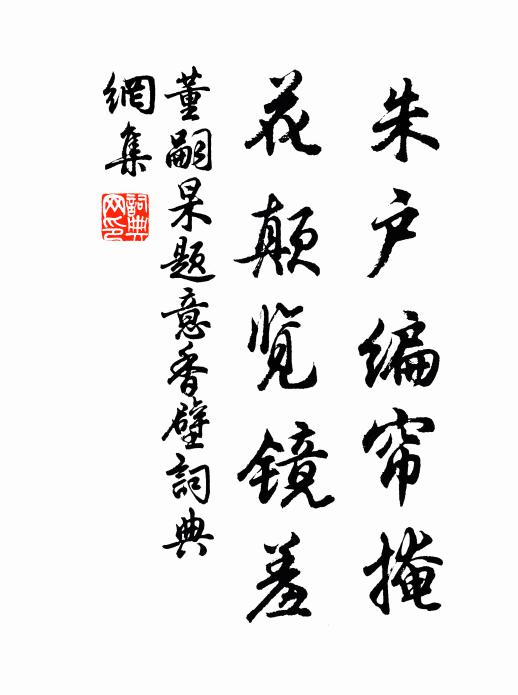 朱户编帘掩
花颠览镜羞
董嗣杲题意香壁詞典
網集
詞典
网印